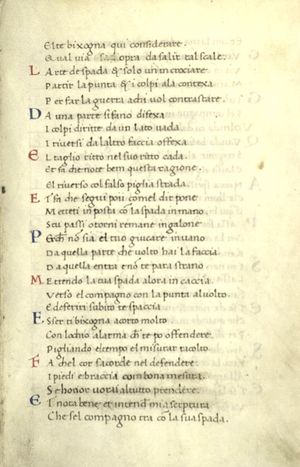 El te bixogna qui considerare.
Qual via sadopra da salir tal scale.
L Arte de spada e solo un incrociare
Partir la punta & i colpi ala contexa
Per far la guerra a chi vol contrastare.
D A una parte si fano difexa
I colpi diritti da un lato vada
I riversi da laltro faccia offexa
E L taglio ritto nel suo ritto cada
Et fa che note bem questa ragione.
El riverso col falso piglia strada
E T fa che segui poi comel dit pone
Metteti in posta cō la spada in mano.
Se tu passi o torni remane in galone
P Erch no sia el tuo giucare in vano
Da quella parte che volto hai la faccia
Da quella entra e nō te para strano.
M Ettendo la tua spada alora in caccia.
Verso el compagno con la punta al volto.
E deferiri subito te spaccia
E Sser ti bixogna acorto molto
Con lochio alarma ch te po offendere.
Pigliando el tempo el misurar racolto
F A chel cor sacorde nel defendere
I piedi e braccia com bona mesura.
Se honor vorai al tutto prendere.
E T nota bene et intendi mia scriptura
Che sel compagno tra cō la sua spada.